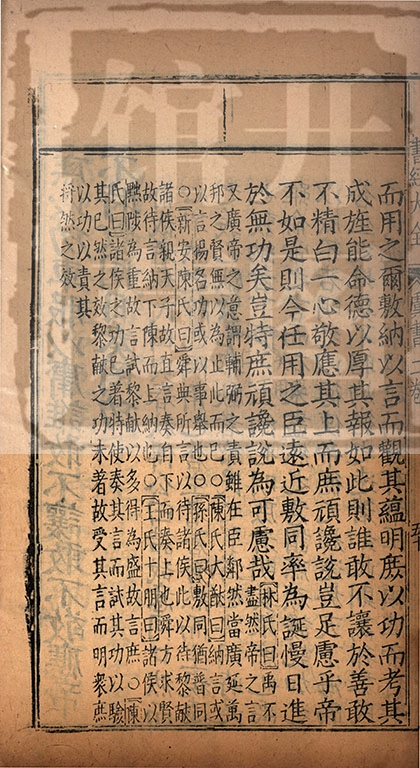 而用之爾敷納以言而觀其蘊明庶以功而考其
成旌能命德以厚其報如此則誰敢不讓於善敢
不精白一心敬應其上而庶頑讒說豈足慮乎帝
不如是則今任用之臣遠近敷同率為誕慢日進
於無功矣豈特庶頑讒說為可慮哉林氏曰禹不
盡然帝之言
又廣帝之意謂輔弼之責雖在臣鄰然當廣延萬
邦之賢無以為止此而已○陳氏大猷曰納言或
以言揚名功或以事舉也○孫氏曰敷同猶普同
○新安陳氏曰舜與所言以待諸侯此以待黎獻
諸侯親天子故直言奏自下而奏上也舜方求賢
故待言納下陳而上納也○王氏十朋曰諸侯以
黜陟為重故言試黎獻以多得為盛故言庶○陳
氏曰諸侯之功已著特使奏其言而試其功以驗
其已然之效黎獻之功未著故受其言而明衆庶
以功以責其
將然之效